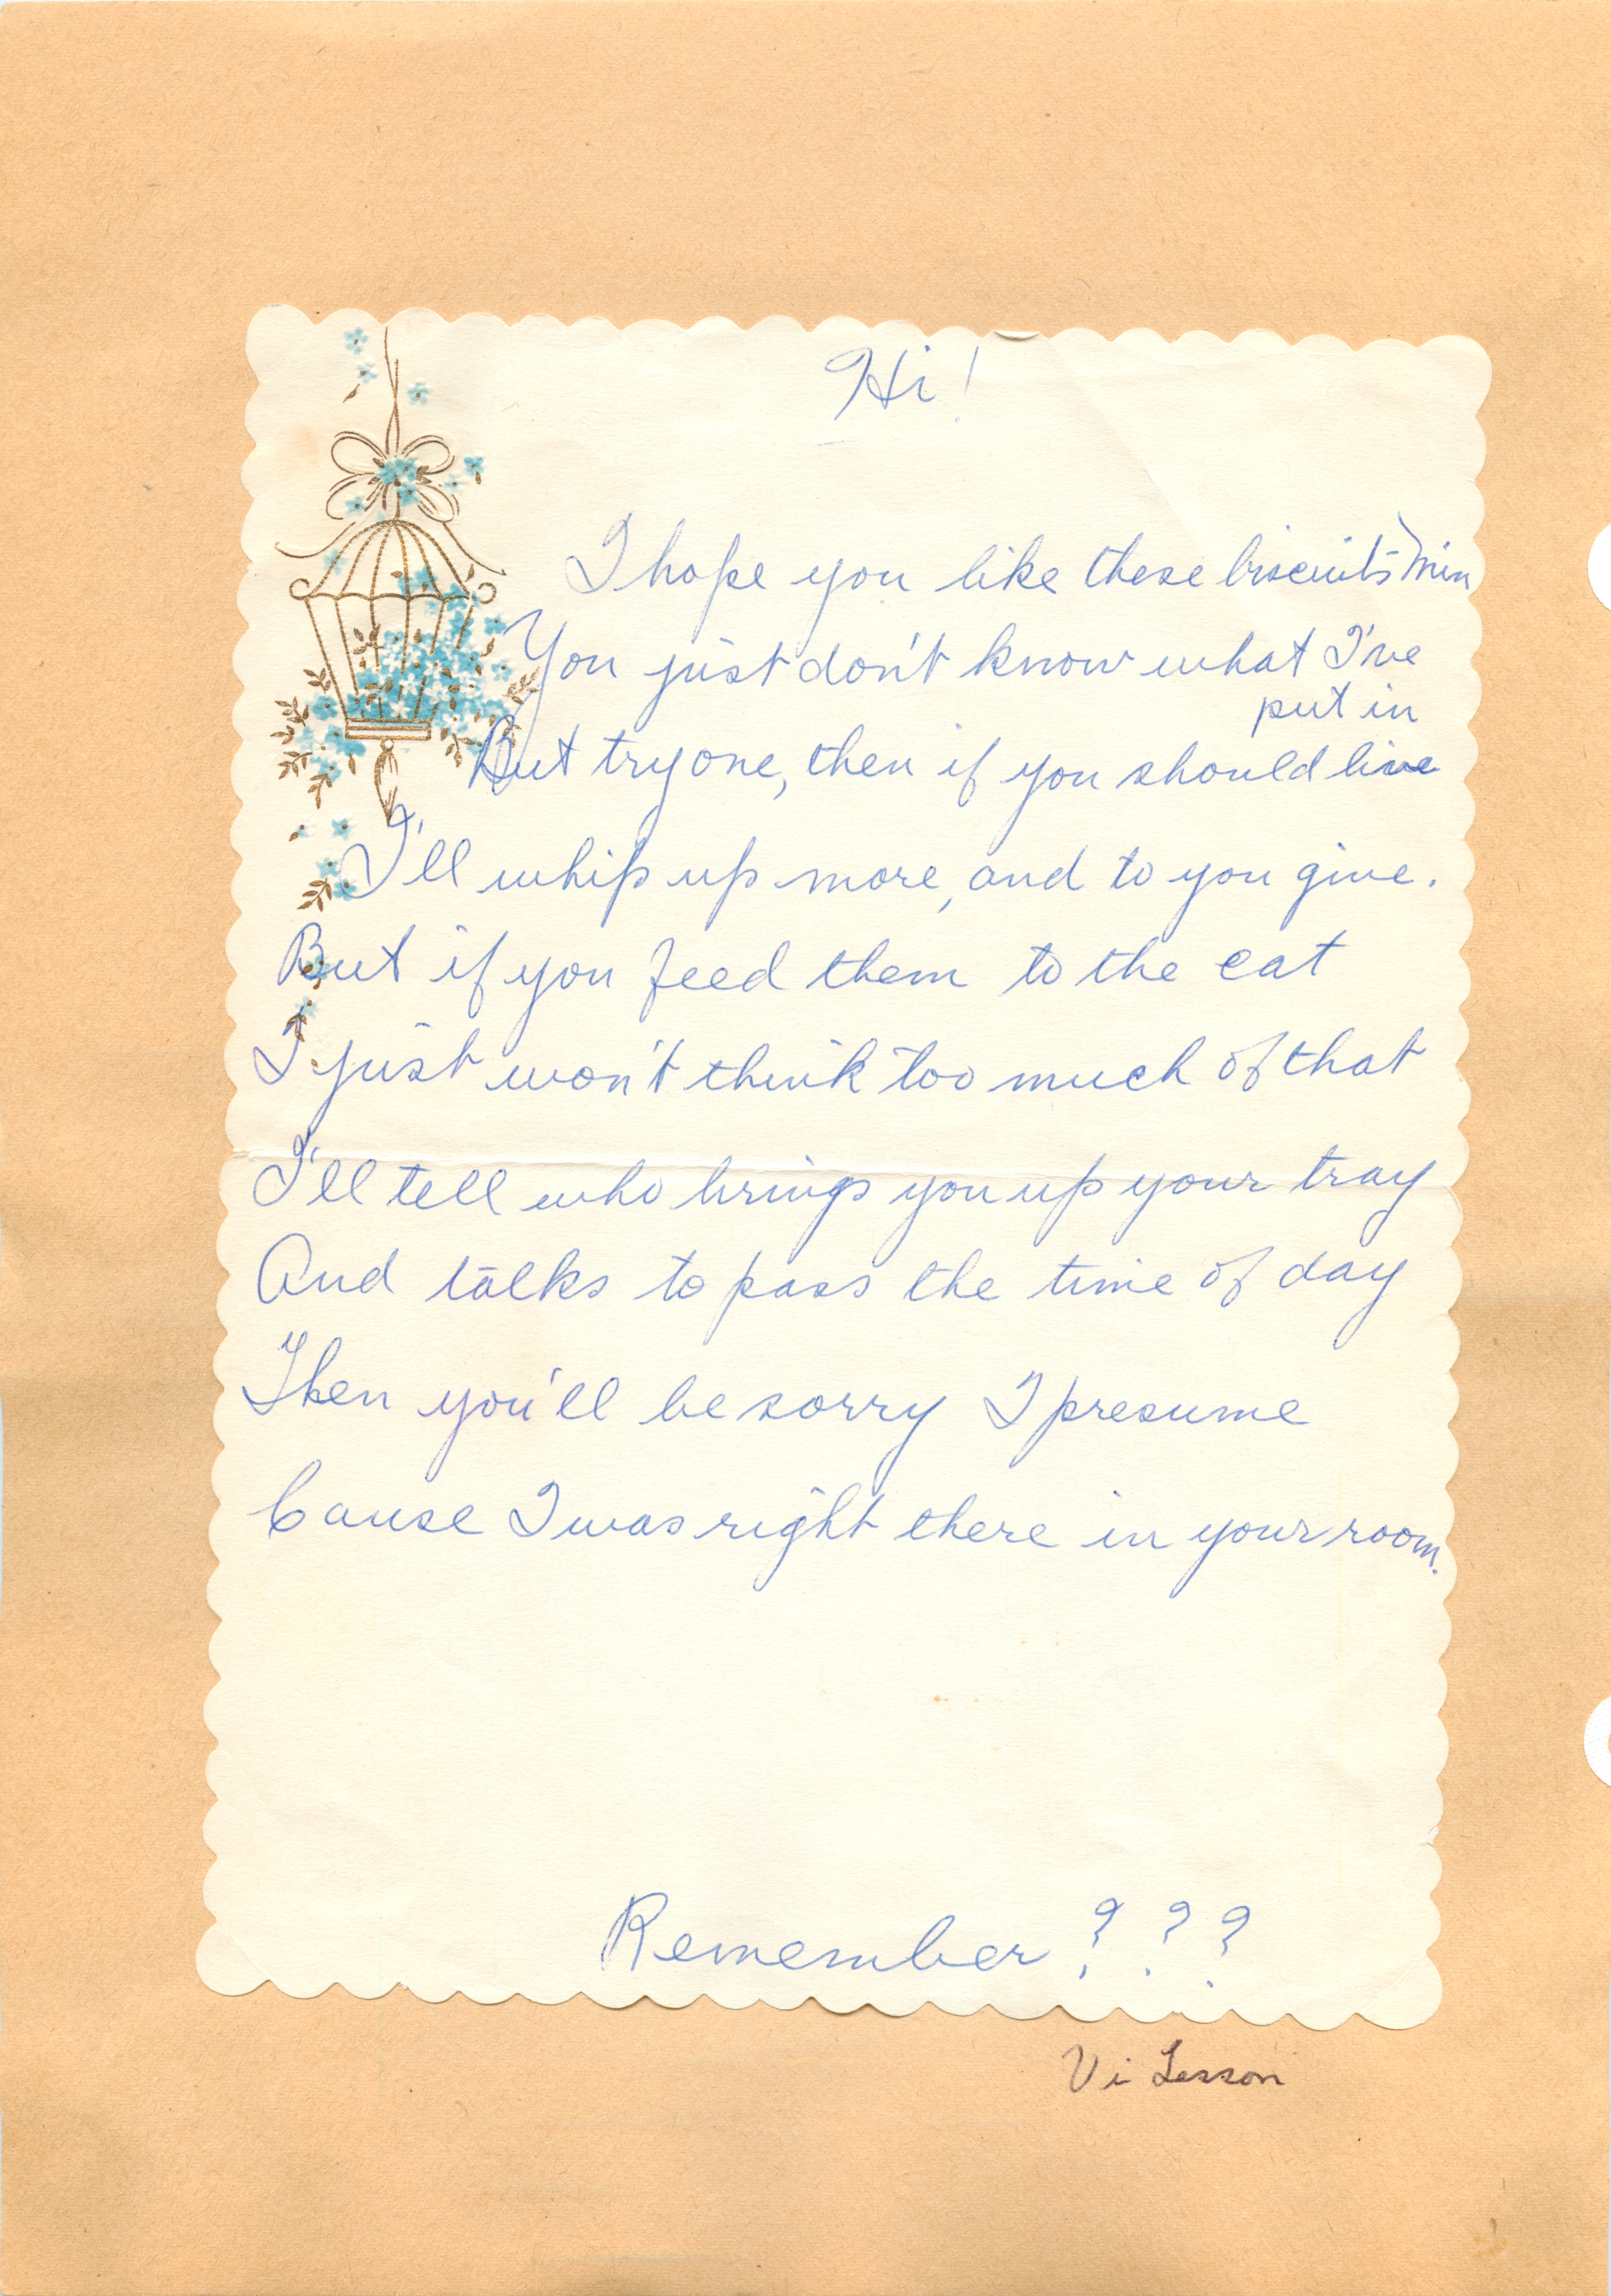 Hi!
I hope you like these biscuits, Min
You just don't know what I've
put in
But try one, then if you should live
I'll whip up more, and to you give.
But if you feed them to the cat
I just won't think too much of that
I'll tell who brings you up your tray
And talks to pass the time of day
Then you'll be sorry I presume
Cause I was right there in your room.
Remember ? ? ?
Vi Lesson